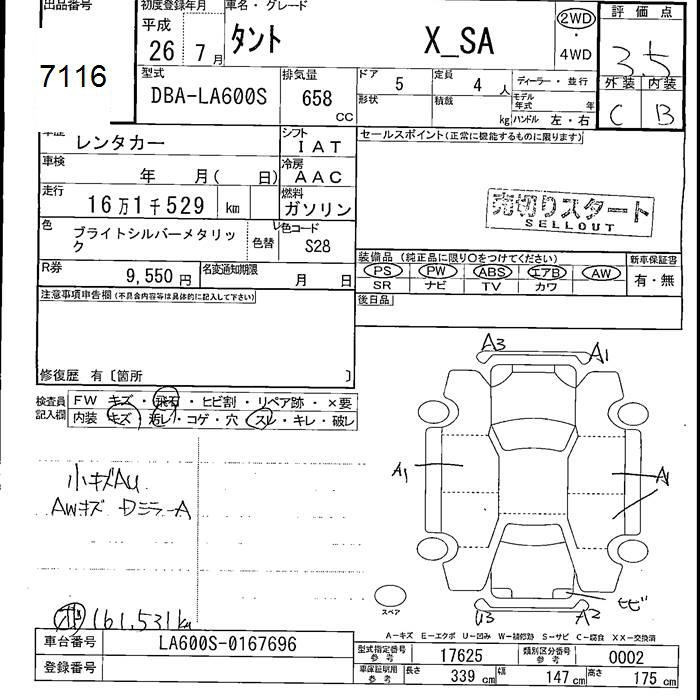 出品番号
7116
初度登録年月
平成
26 7 月
車名・グレード
タント X_SA
2WD
・
4WD
評価点
3.5
外装 内装
C B
型式
DBA-LA600S
排気量
658
CC
ドア 5
定員 4 人
ディーラー・並行
形状
積載
kg
モデル年式 年
ハンドル 左・右
車歴
レンタカー
シフト
IAT
車検
年 月( 日)
冷房
AAC
走行
16万1千529 km
燃料
ガソリン
色
ブライトシルバーメタリック
色替
色コード
S28
R券
9,550 円
名変通知期限
月 日
セールスポイント(正常に機能するものに限ります)
売切りスタート
SELLOUT
装備品 (純正品に限り○をつけてください)
PS PW ABS エアB AW
SR ナビ TV カワ
新車保証書
有・無
後日品
注意事項申告欄(不具合内容等は具体的に記入して下さい)
修復歴 有〔箇所 〕
検査員
記入欄
FW キズ・飛石・ヒビ割・リペア跡・×要
内装 キズ・汚レ・コゲ・穴・スレ・キレ・破レ
小キズAU
AWキズ DミラーA
161,531km
A3
A1
A1
A1
ヒビ
U3
A2
スペア
A-キズ E-エクボ U-凹み W-補修跡 S-サビ C-腐食 XX-交換済
車台番号
LA600S-0167696
登録番号
型式指定番号
参考
17625
類別区分番号
参考
0002
車庫証明用
参考
長さ 339 cm
幅 147 cm
高さ 175 cm